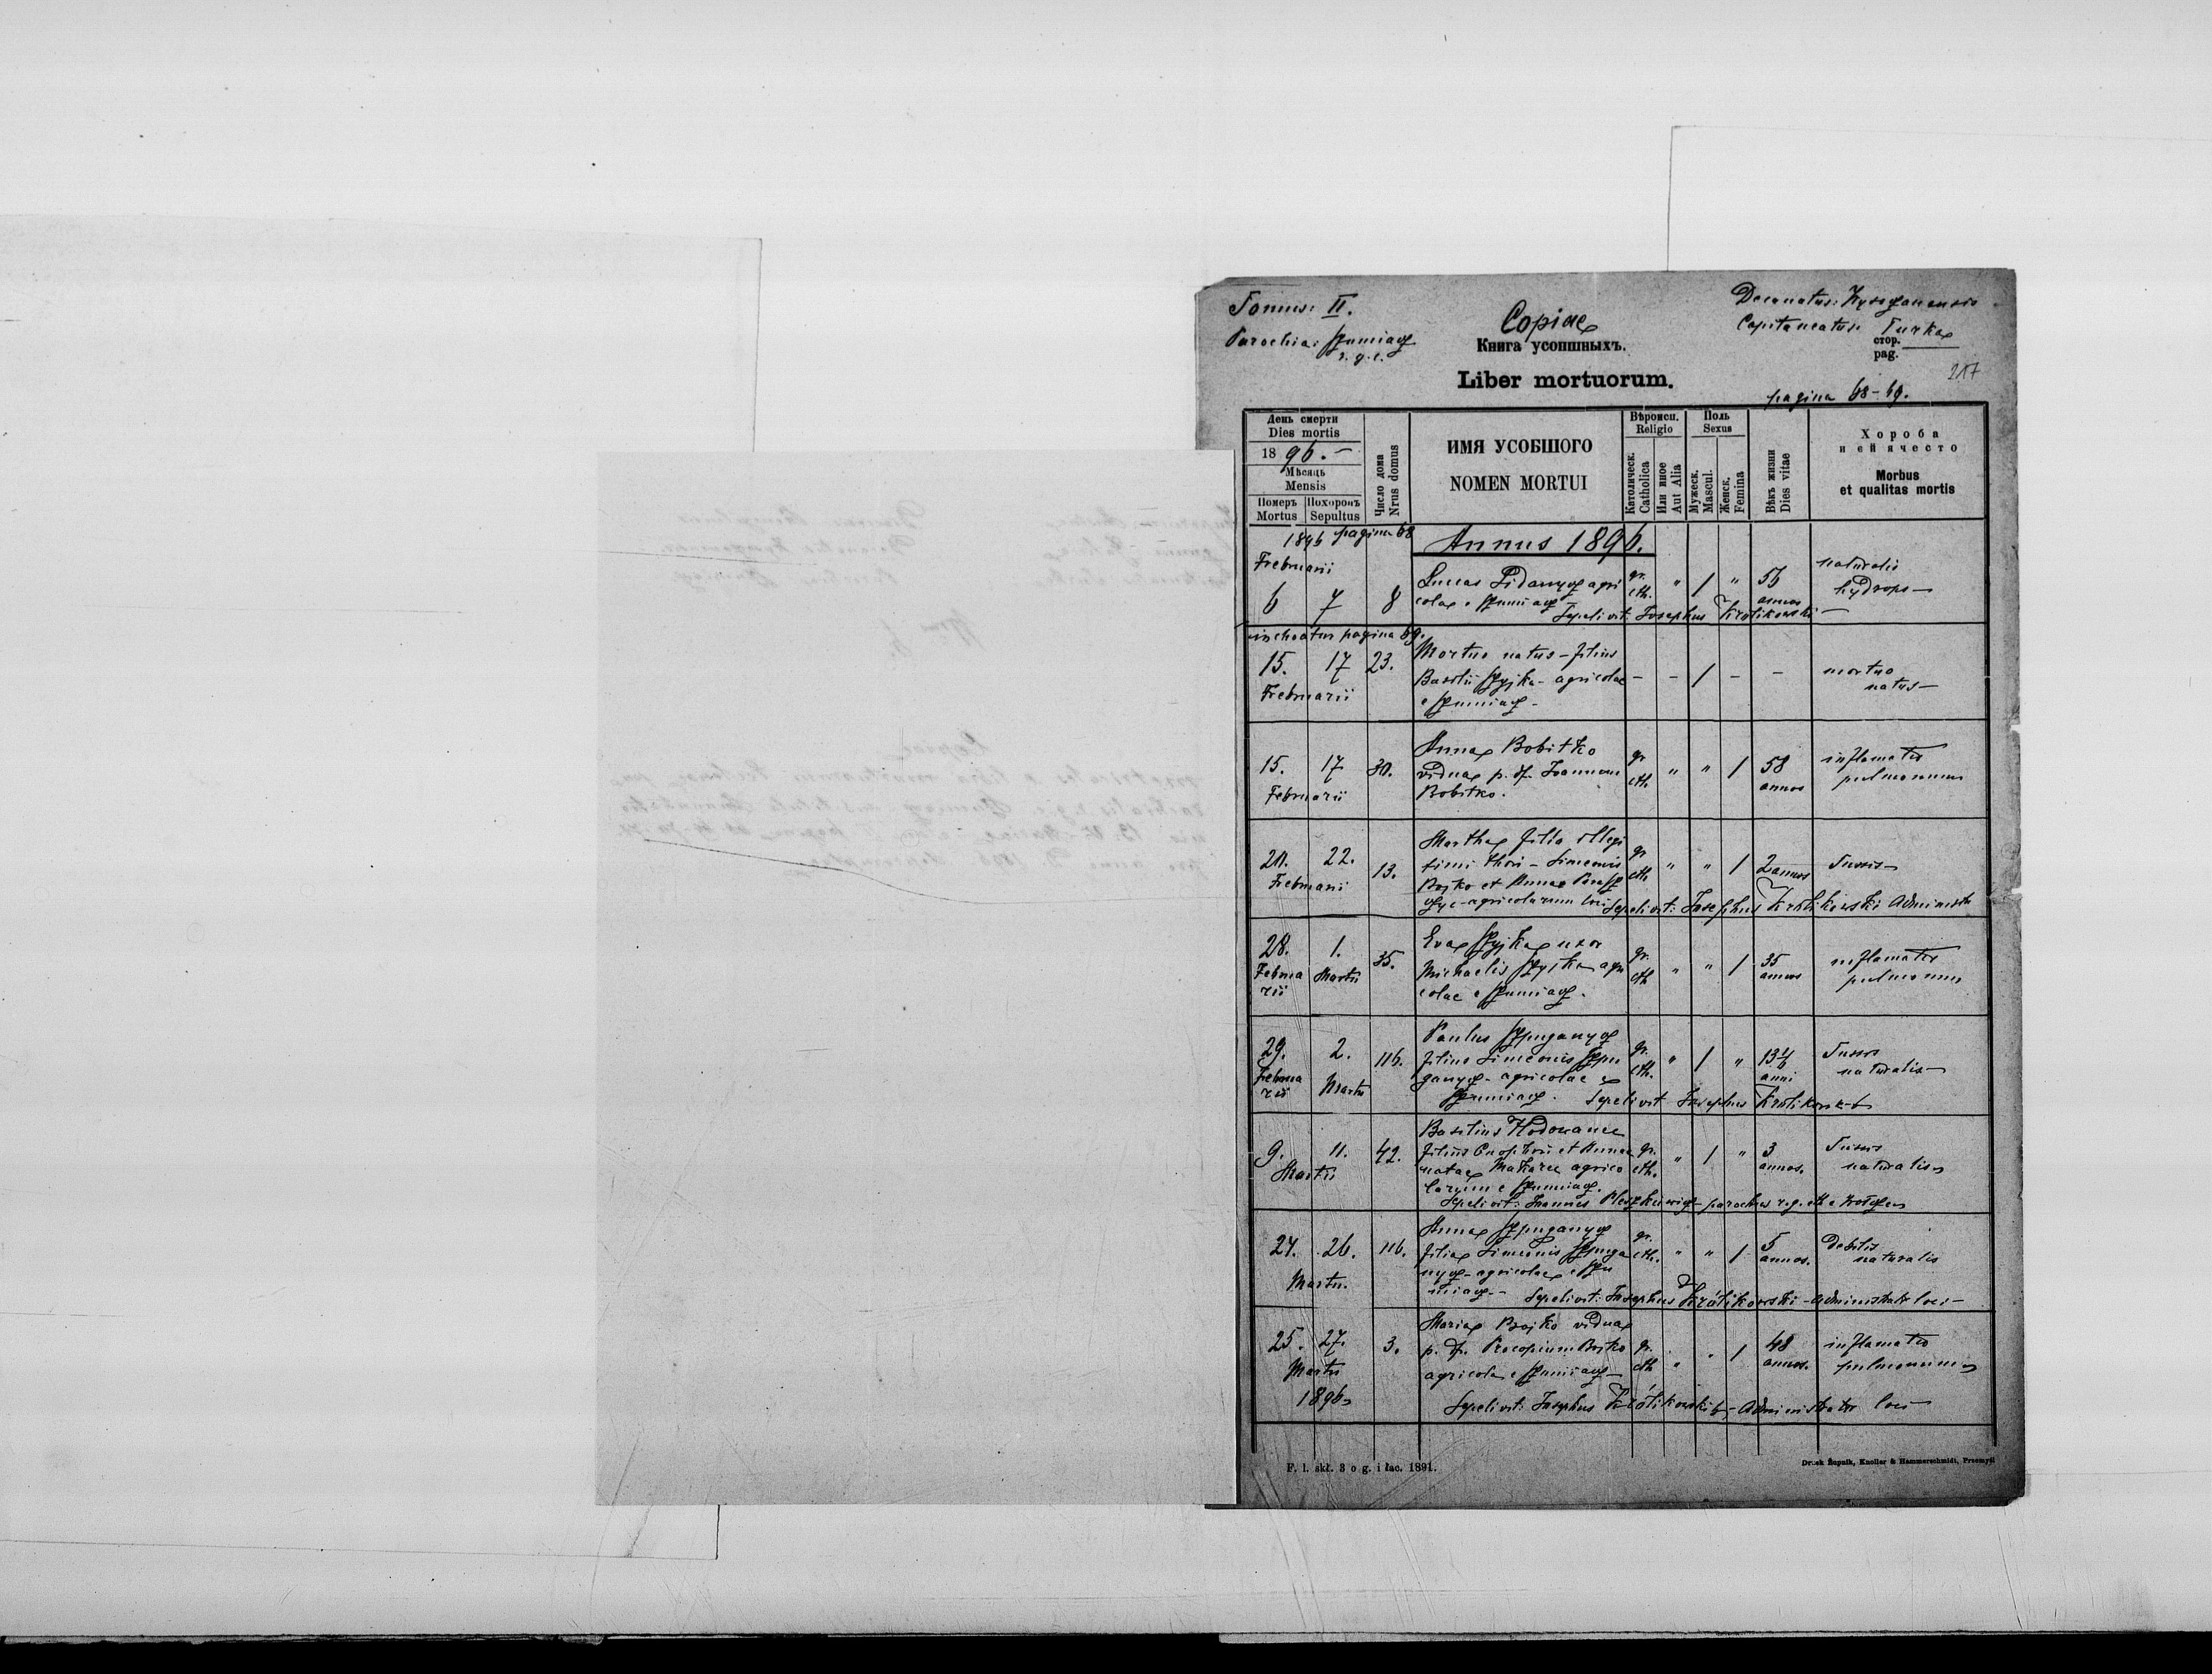 Tomus: II.
Parochia: Szumiacz
r. g. c.
Copiae
Decanatus:
Capitaneatus: Turka
Книга усопшныхъ.
стор.
pag.
Liber mortuorum.
217
pagina 68-69.
День смерти
Dies mortis
1896.-
Мѣсяцъ
Mensis
Померъ Похоронъ
Mortus Sepultus
Число дома
Nrus domus
ИМЯ УСОБШОГО
NOMEN MORTUI
Вѣроисп.
Religio
Католическ.
Catholica
Или иное
Aut Alia
Полъ
Sexus
Мужеск.
Mascul.
Женск.
Femina
Вѣкъ жизни
Dies vitae
Хороба
и ей ячесто
Morbus
et qualitas mortis
1896 pagina 68
Annus 1896.
Februarii
6 7 8 Luccas agri
colae e Szumiacz
gr. cth. " 1 " 56 annos
naturalis
hydrops-
Sepelivit: Josephus Krolikowski-
inchoatur pagina 69.
15. 17 23.
Februarii
Mortuo natus - filius
Basilii Szyjka - agricolae
e Szumiacz -
- - 1 - -
mortuo
natus-
15. 17 30.
Februarii
Anna Bobitko
vidua p. df. Joannem
Bobitko.
gr. cth. " " 1 58 annos
inflamatio
pulmonum
20. 22. 13.
Februarii
Martha filia illegi
timi thori - Simeonis
Bojko et Annae
agricolarum loci
gr. cth. " " 1 2 annos
Tussis-
Sepelivit: Josephus Krolikowski Administr
28. 1. 35.
Februa
rii Martii
Eva Szyjka uxor
Michaelis Szyjka agri
colae e Szumiacz.
gr. cth " " 1 35 annos
inflamatio
pulmonum
29. 2. 116.
Februa
rii Martii
Paulus Szpuganycz
filius Simeonis Szpu
ganycz - agricolae e
Szumiacz.
gr. cth. " 1 "
anni
Tussis
naturalis-
Sepelivit Josephus Krolikowski
9. 11. 42.
Martii
Basilius Hodowanec
filius Onophrii et Annae
natae Makarec agrico
larum e Szumiacz.
gr. cth. " 1 " 3 annos.
Tussis
naturalis
Sepelivit: Joannes parochus r. g. cth e
24. 26. 116.
Martii.
Anna Szpuganycz
filia Simeonis Szpuga
nycz - agricolae e Szu
miacz--
gr. cth. " " 1 5 annos.
Debilis
naturalis
Sepelivit: Josephus Królikowski - Administrator loci-
25. 27. 3.
Martii
1896
Maria Bojko vidua
p. df. Procopium Bojko
agricola e Szumiacz-
gr. cth " " 1 48 annos.
inflamatio
pulmonum
Sepelivit: Josephus Królikowski - Administrator loci
F. l. skł. 3 o g. i łac. 1891.
Druk Żupnik, Knoller & Hammerschmidt, Przemyśl